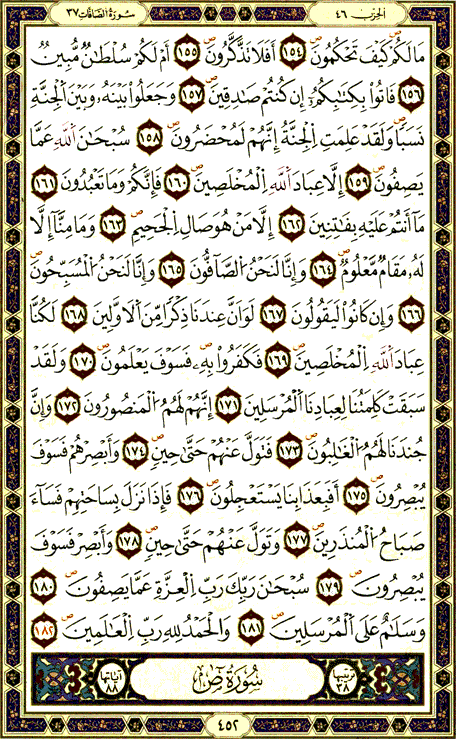 الحزب ٤٦ سورة الصافات ٣٧
مَا لَكُمْ كَيْفَ تَحْكُمُونَ ١٥٤ أَفَلَا تَذَكَّرُونَ ١٥٥ أَمْ لَكُمْ سُلْطَانٌ مُّبِينٌ
١٥٦ فَأْتُوا بِكِتَابِكُمْ إِن كُنتُمْ صَادِقِينَ ١٥٧ وَجَعَلُوا بَيْنَهُ وَبَيْنَ الْجِنَّةِ
نَسَبًا وَلَقَدْ عَلِمَتِ الْجِنَّةُ إِنَّهُمْ لَمُحْضَرُونَ ١٥٨ سُبْحَانَ اللَّهِ عَمَّا
يَصِفُونَ ١٥٩ إِلَّا عِبَادَ اللَّهِ الْمُخْلَصِينَ ١٦٠ فَإِنَّكُمْ وَمَا تَعْبُدُونَ ١٦١
مَا أَنتُمْ عَلَيْهِ بِفَاتِنِينَ ١٦٢ إِلَّا مَنْ هُوَ صَالِ الْجَحِيمِ ١٦٣ وَمَا مِنَّا إِلَّا
لَهُ مَقَامٌ مَّعْلُومٌ ١٦٤ وَإِنَّا لَنَحْنُ الصَّافُّونَ ١٦٥ وَإِنَّا لَنَحْنُ الْمُسَبِّحُونَ
١٦٦ وَإِن كَانُوا لَيَقُولُونَ ١٦٧ لَوْ أَنَّ عِندَنَا ذِكْرًا مِّنَ الْأَوَّلِينَ ١٦٨ لَكُنَّا
عِبَادَ اللَّهِ الْمُخْلَصِينَ ١٦٩ فَكَفَرُوا بِهِ فَسَوْفَ يَعْلَمُونَ ١٧٠ وَلَقَدْ
سَبَقَتْ كَلِمَتُنَا لِعِبَادِنَا الْمُرْسَلِينَ ١٧١ إِنَّهُمْ لَهُمُ الْمَنصُورُونَ ١٧٢ وَإِنَّ
جُندَنَا لَهُمُ الْغَالِبُونَ ١٧٣ فَتَوَلَّ عَنْهُمْ حَتَّىٰ حِينٍ ١٧٤ وَأَبْصِرْهُمْ فَسَوْفَ
يُبْصِرُونَ ١٧٥ أَفَبِعَذَابِنَا يَسْتَعْجِلُونَ ١٧٦ فَإِذَا نَزَلَ بِسَاحَتِهِمْ فَسَاءَ
صَبَاحُ الْمُنذَرِينَ ١٧٧ وَتَوَلَّ عَنْهُمْ حَتَّىٰ حِينٍ ١٧٨ وَأَبْصِرْ فَسَوْفَ
يُبْصِرُونَ ١٧٩ سُبْحَانَ رَبِّكَ رَبِّ الْعِزَّةِ عَمَّا يَصِفُونَ ١٨٠
وَسَلَامٌ عَلَى الْمُرْسَلِينَ ١٨١ وَالْحَمْدُ لِلَّهِ رَبِّ الْعَالَمِينَ ١٨٢
ترتيبها ٣٨ سُورَةُ صٓ آياتها ٨٨
٤٥٢